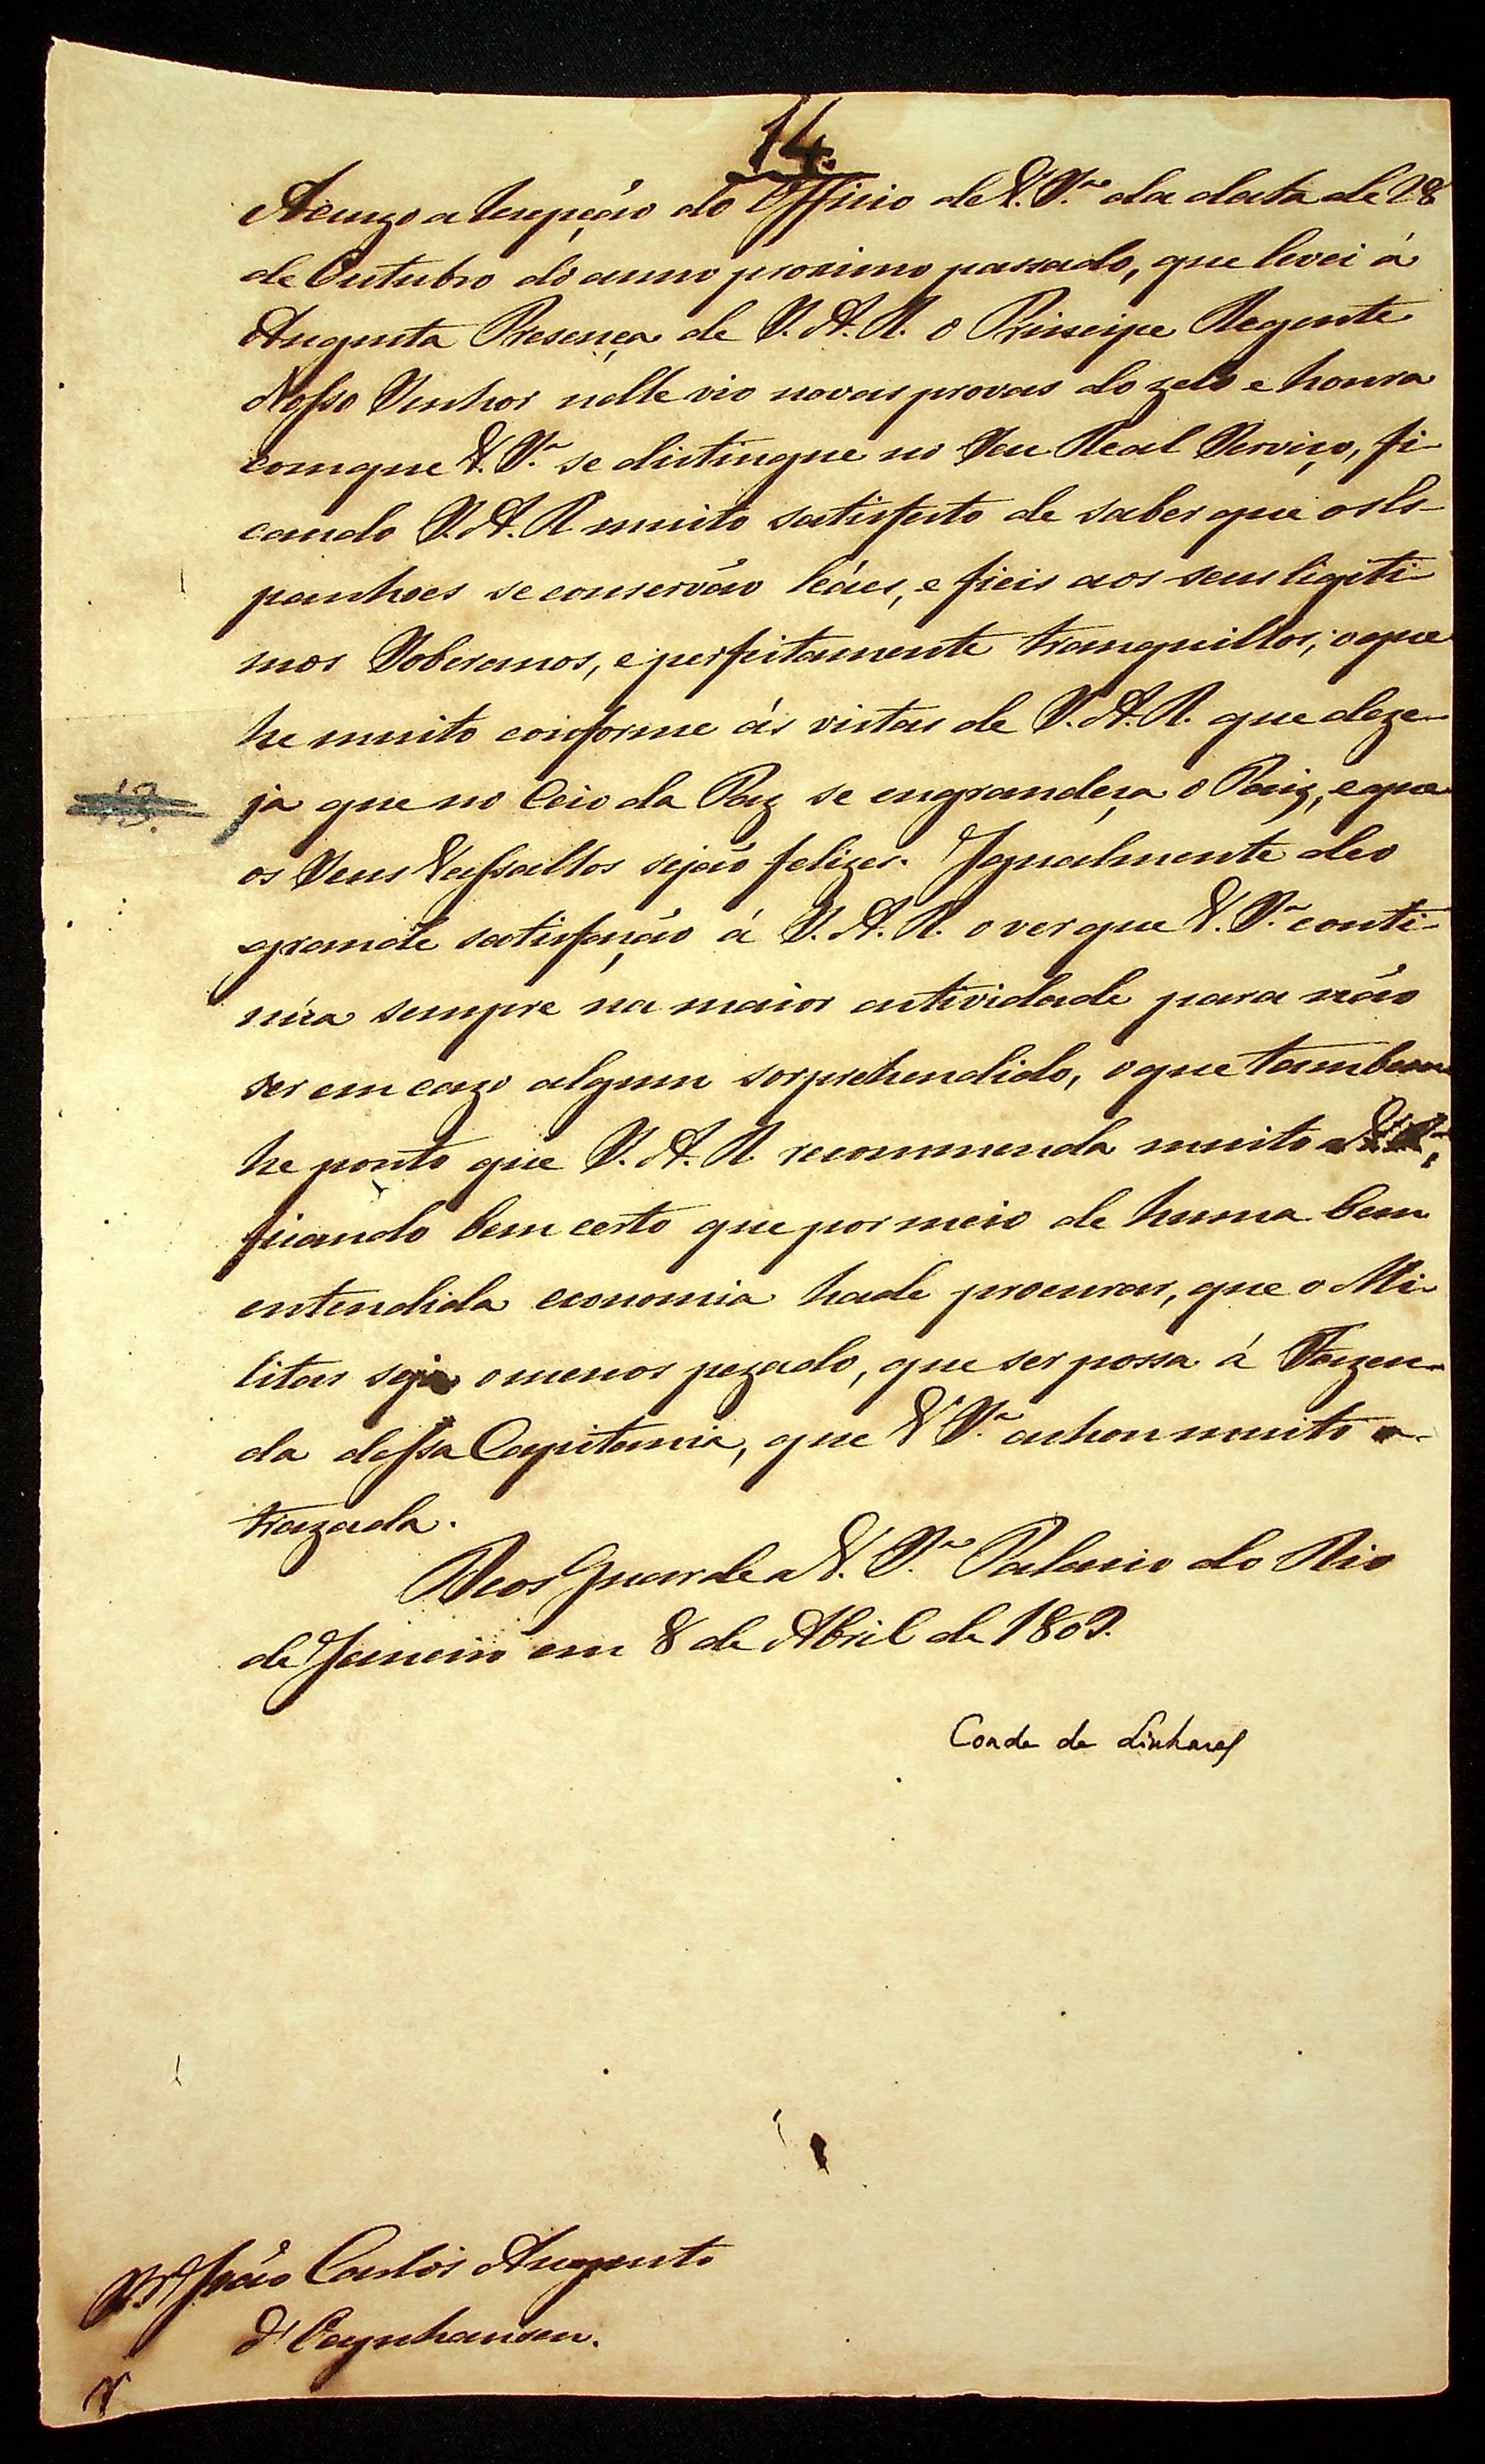 14.
Acuzo a recepção do Officio de V. S.ª da data de 28
de Outubro do anno proximo passado, que levei á
Augusta Presença de S. A. R. o Principe Regente
Nosso Senhor nelle vio novas provas do zelo e honra
com que V. S.ª se distingue no Seu Real Serviço, fi-
cando S. A. R. muito satisfeito de saber que os Es-
panhoes se conservão leáes, e fieis aos seus ligiti-
mos Soberanos, e perfeitamente tranquillos; o que
he muito conforme ás vistas de S. A. R. que deze-
ja que no Ceio da Paz se engrandeça o Paiz, e que
os Seus Vassallos sejão felizes. Igualmente deo
grande satisfação á S. A. R. o ver que V. S.ª conti-
núa sempre na maior actividade para não
ser em cazo algum sorprehendido, o que tambem
he ponto que S. A. R recommenda muito a V. S.ª,
ficando bem certo que por meio de huma bem
entendida economia hade procurar, que o Mi-
litar seja o menos pezado, que ser possa á Fazen-
da dessa Capitania, que V S.ª achou muito a-
trazada.
Deos Guarde a V. S.ª Palacio do Rio
de Janeiro em 8 de Abril de 1809.
Conde de Linhares
13.
S.r João Carlos Augusto
d'Oeynhausen.